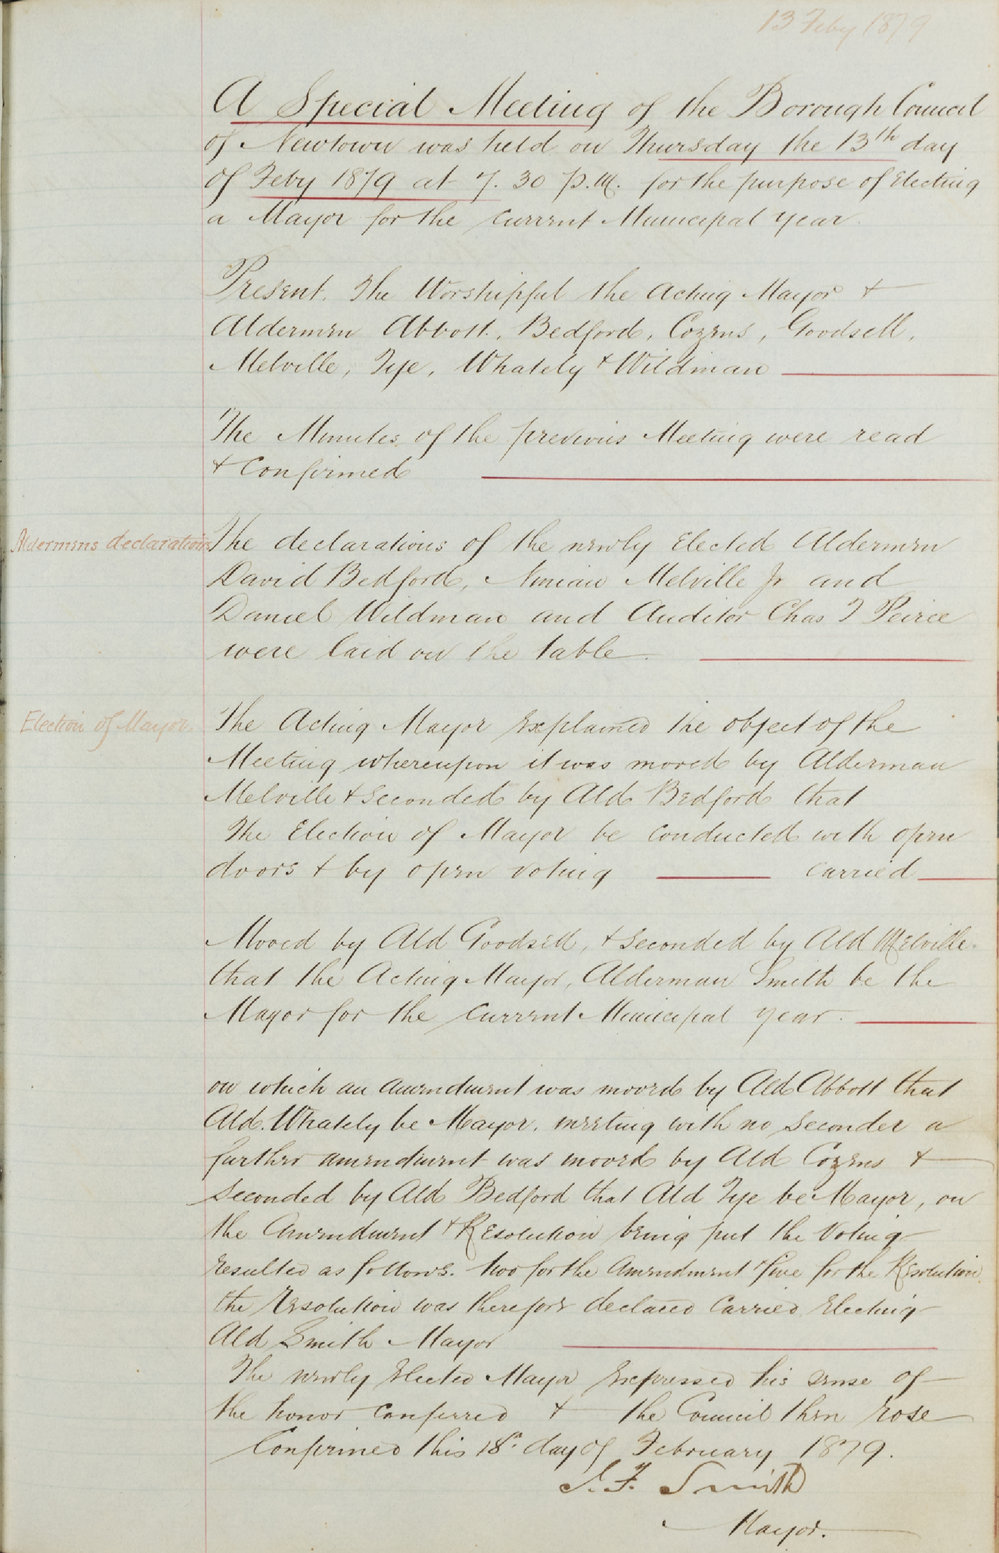 13 Feby 1879
A Special Meeting of the Borough Council
of Newtown was held on Thursday the 13th day
of Feby 1879 at 7.30 p.m. for the purpose of Electing
a Mayor for the current Municipal year.
Present. The Worshipful the Acting Mayor &
Aldermen Abbott, Bedford, Cozens, Goodsell,
Melville, Tye, Whately & Wildman
The Minutes of the previous Meeting were read
& Confirmed
Aldermens declarations
The declarations of the newly Elected Aldermen
David Bedford, Ninian Melville Jr and
Daniel Wildman and Auditor Chas T Peirce
were laid on the table.
Election of Mayor.
The Acting Mayor explained the object of the
Meeting whereupon it was moved by Alderman
Melville & seconded by Ald Bedford that
The Election of Mayor be conducted with open
doors & by open voting carried
Moved by Ald Goodsell, & seconded by Ald Melville.
that the Acting Mayor, Alderman Smith be the
Mayor for the current Municipal year.
on which an amendment was moved by Ald Abbott that
Ald. Whately be Mayor, meeting with no seconder a
further amendment was moved by Ald Cozens &
seconded by Ald Bedford that Ald Tye be Mayor, on
the Amendment & Resolution being put the Voting
resulted as follows. two for the Amendment five for the Resolution.
the resolution was therefore declared carried Electing
Ald Smith Mayor
The newly Elected Mayor expressed his sense of
the honor conferred & the Council then rose
Confirmed this 18th day of February 1879.
J. F. Smith
Mayor.